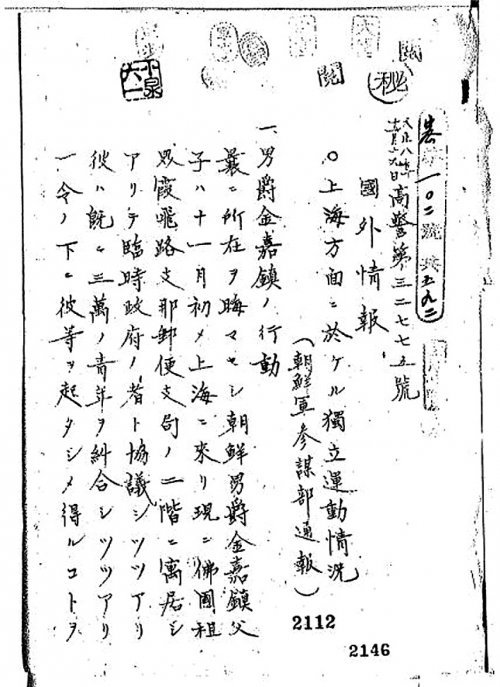 秘
閲
閲
大正八年
高警第三二七七五號
國外情報
○上海方面ニ於ケル獨立運動情況
(朝鮮軍參謀部通報)
一、男爵金嘉鎮ノ行動
曩ニ所在ヲ晦マセシ朝鮮男爵金嘉鎮父
子ハ十一月初メ上海ニ來リ現ニ佛國租
界霞飛路支那郵便支局ノ二階ニ寓居シ
アリテ臨時政府ノ者ト協議シツツアリ
彼ハ既ニ三萬ノ青年ヲ糾合シツツアリ
一令ノ下ニ彼等ヲ起タシメ得ルコトヲ
2112
2146